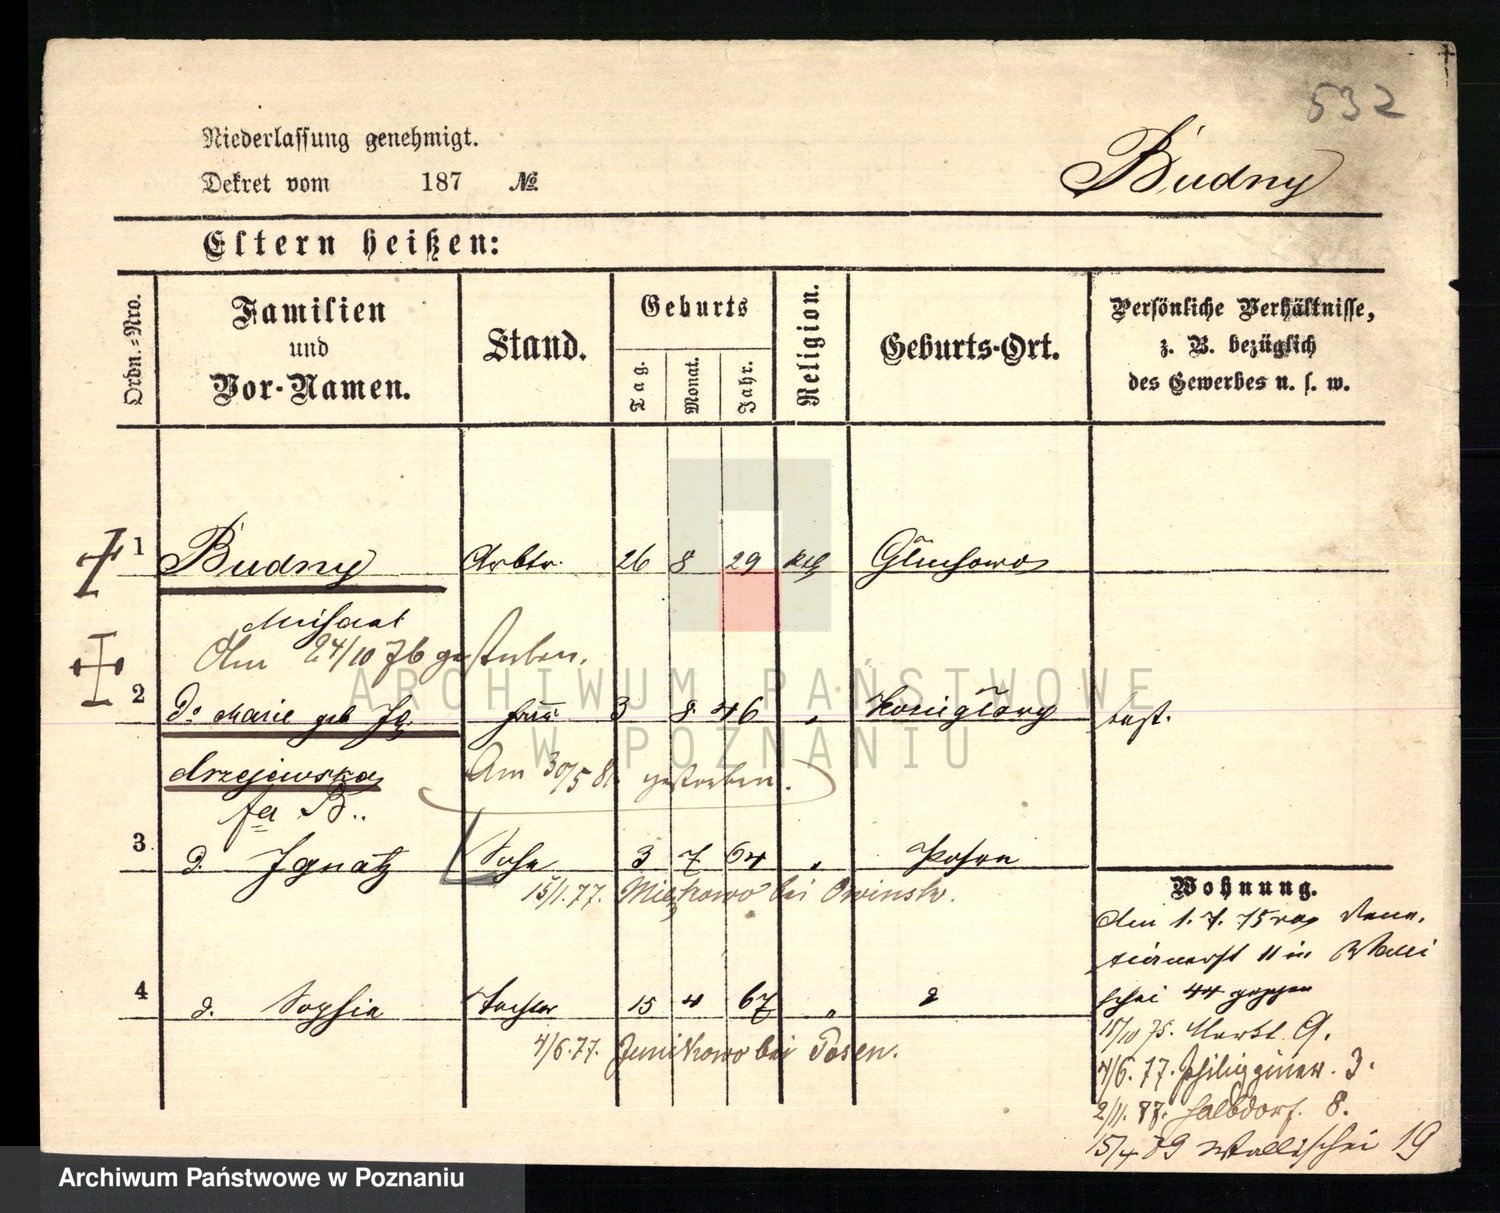 532
Niederlassung genehmigt.
Dekret vom 187 №
Budny
Eltern heißen:
Ordn.=Nro.
Familien
und
Vor-Namen.
Stand.
Geburts
Tag.
Monat.
Jahr.
Religion.
Geburts-Ort.
Persönliche Verhältnisse,
z. B. bezüglich
des Gewerbes u. s. w.
1 Budny Arbtr. 26 8 29 kth Gluchowo
Michael
Am 24/10 76 gestorben.
2 do Marie geb Ję Frau 3 8 46 " best.
drzejewska Am 30/5 81 gestorben.
3 d. Ignatz Sohn 3 7 64 " Posen
15/1.77. bei Owinsk.
Wohnung.
Am 1. 7. 75 11 in Walli
schei 44 gezogen
4 d. Sophie Tochter 15 4 67 " d
4/6.77. Junikowo bei Posen.
15/10 75. Markt 9.
4/6. 77. 3.
2/11. Halbdorf. 8.
15/4 79 Wallischei 19
ARCHIWUM PAŃSTWOWE
W POZNANIU
Archiwum Państwowe w Poznaniu